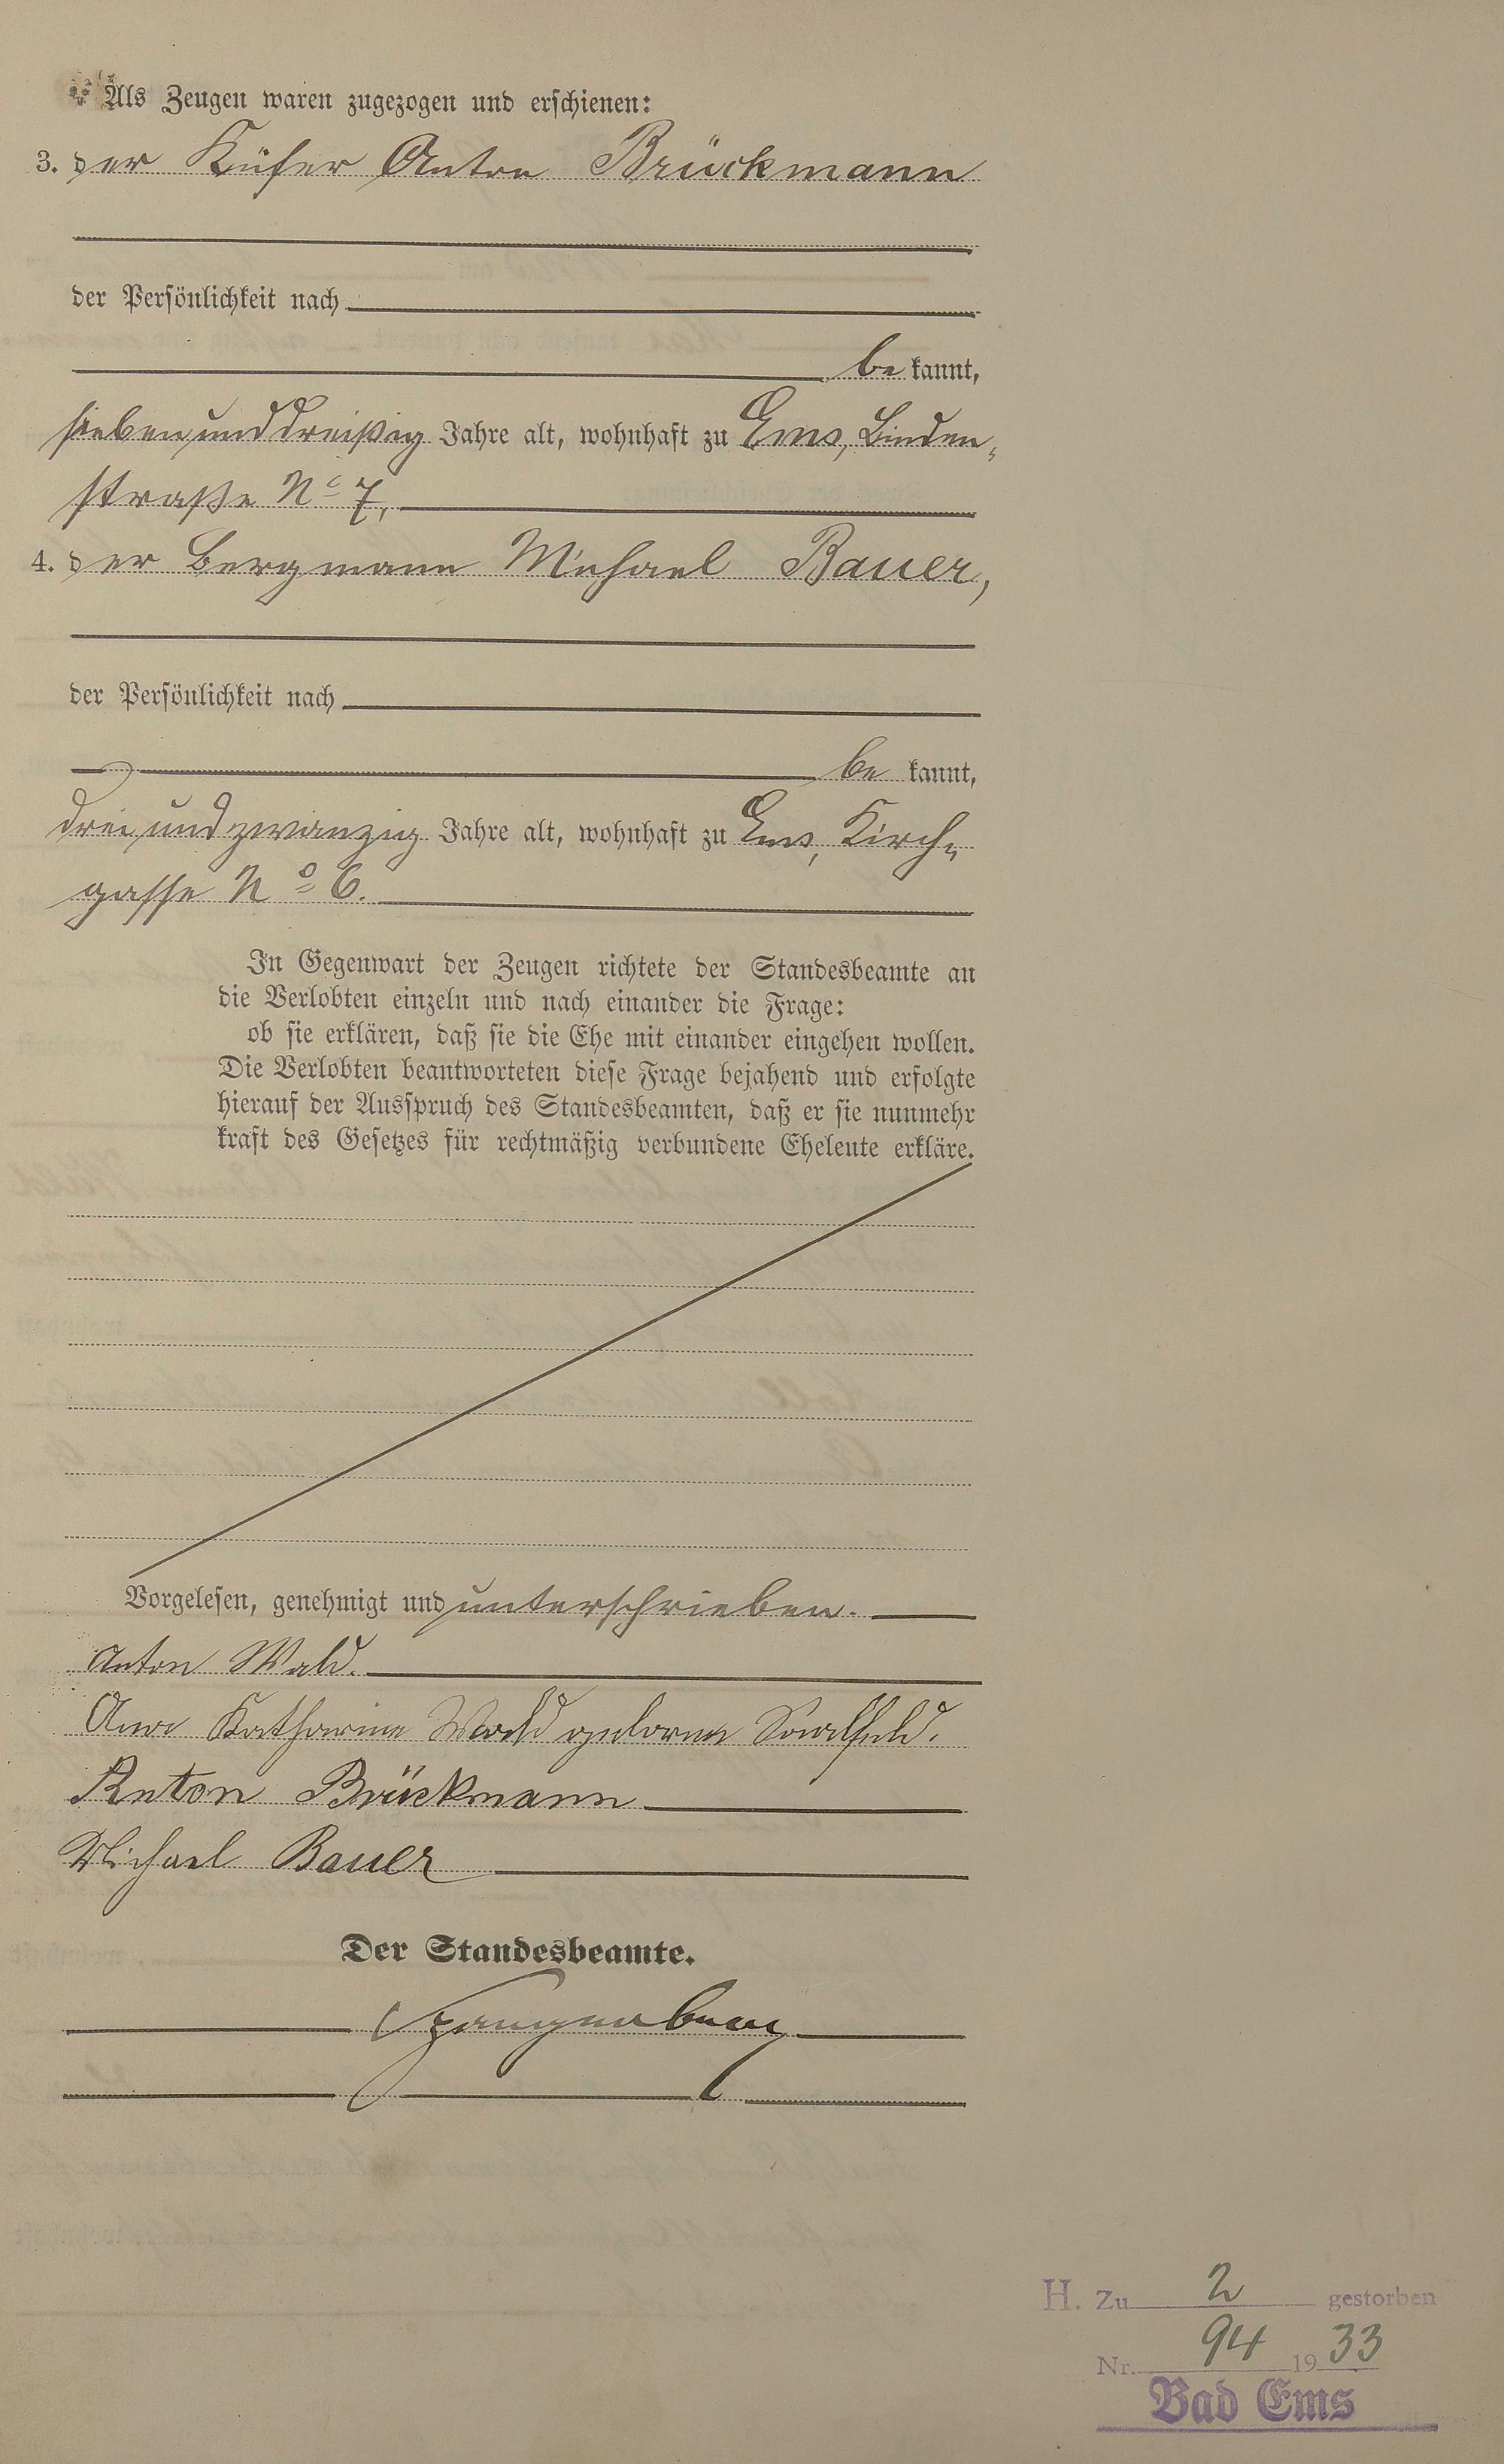 Als Zeugen waren zugezogen und erschienen:
3. der Küfer Anton Brückmann
der Persönlichkeit nach
be kannt,
siebenunddreißig Jahre alt, wohnhaft zu Ems, Linden-
straße No 7,
4. der Bergmann Michael Bauer,
der Persönlichkeit nach
be kannt,
dreiundzwanzig Jahre alt, wohnhaft zu Ems, Kirch-
gasse No 6.
In Gegenwart der Zeugen richtete der Standesbeamte an
die Verlobten einzeln und nach einander die Frage:
ob sie erklären, daß sie die Ehe mit einander eingehen wollen.
Die Verlobten beantworteten diese Frage bejahend und erfolgte
hierauf der Ausspruch des Standesbeamten, daß er sie nunmehr
kraft des Gesetzes für rechtmäßig verbundene Eheleute erkläre.
Vorgelesen, genehmigt und unterschrieben.
Anton Wald.
Anna Katharina Wald geborene Saalfeld.
Anton Brückmann
Michael Bauer
Der Standesbeamte.
H. Zu 2 gestorben
Nr. 94 1933
Bad Ems